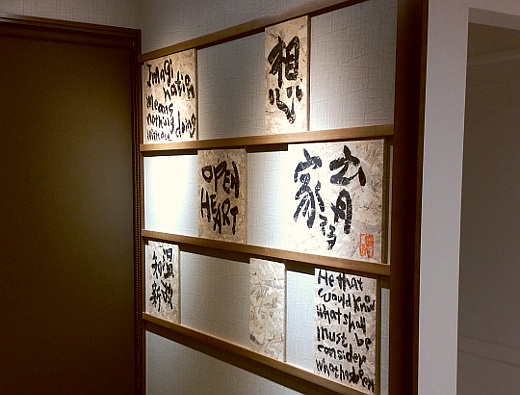 Imagi
nation
means
nothing
without doing
想
OPEN
HEART
育
家
温故
知新
He that
would know
what shall
must be
consider
what has been